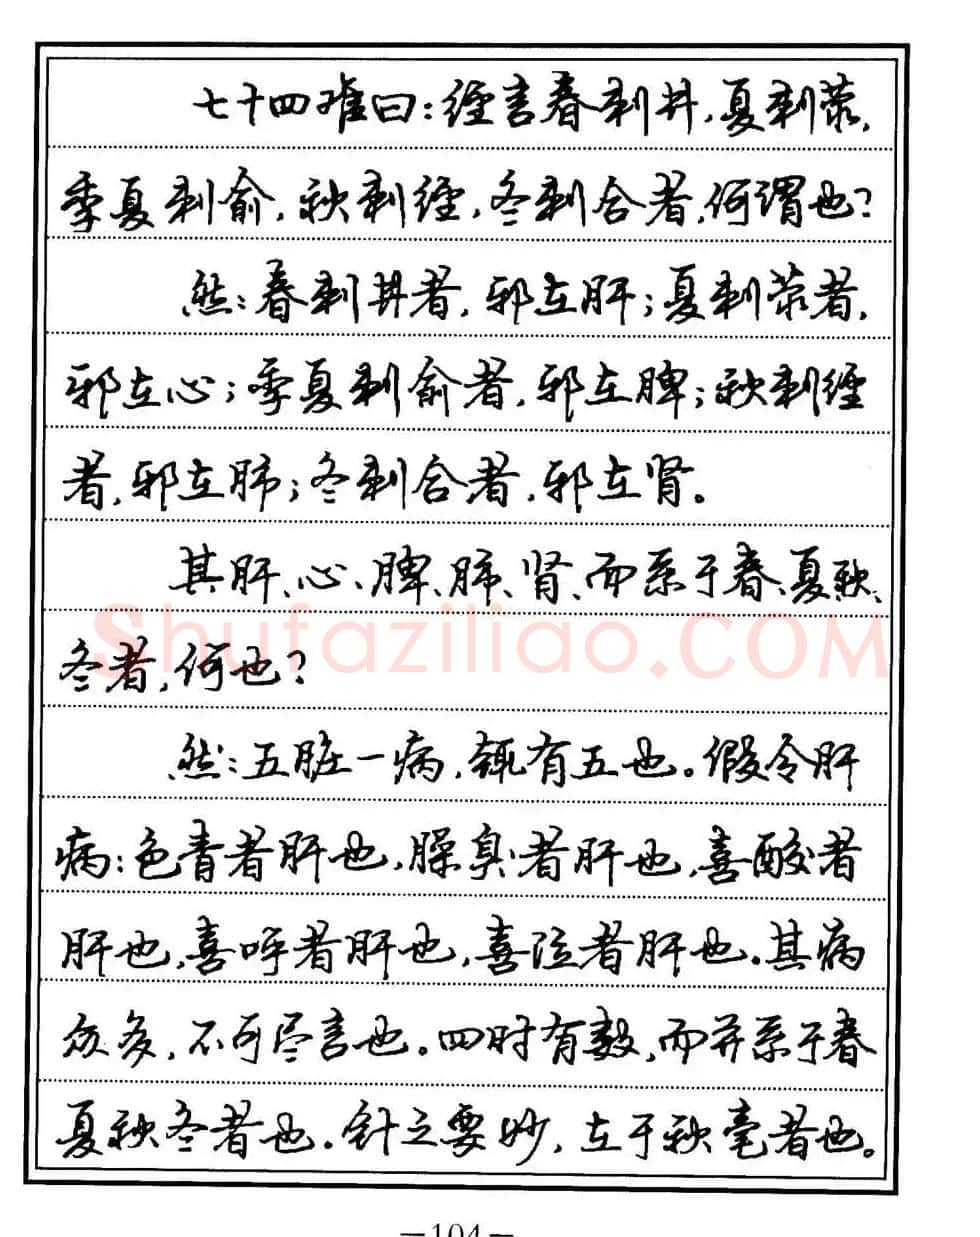 七十四难曰：经言春刺井，夏刺荥，
季夏刺俞，秋刺经，冬刺合者，何谓也？
然：春刺井者，邪在肝；夏刺荥者，
邪在心；季夏刺俞者，邪在脾；秋刺经
者，邪在肺；冬刺合者，邪在肾。
其肝、心、脾、肺、肾、而系于春、夏秋、
冬者，何也？
然：五脏一病，辄有五也。假令肝
病：色青者肝也，臊臭者肝也，喜酸者
肝也，喜呼者肝也，喜泣者肝也。其病
众多，不可尽言也。四时有数，而并系于春
夏秋冬者也。针之要妙，在于秋毫者也。
shufaziliao.COM
—104—